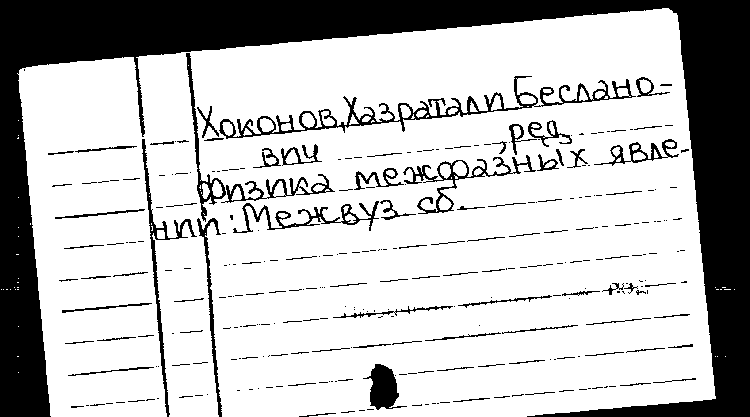 Хоконов, Хазратали Беслано-
вич , ред.
Физика межфазных явле-
ний: Межвуз сб.